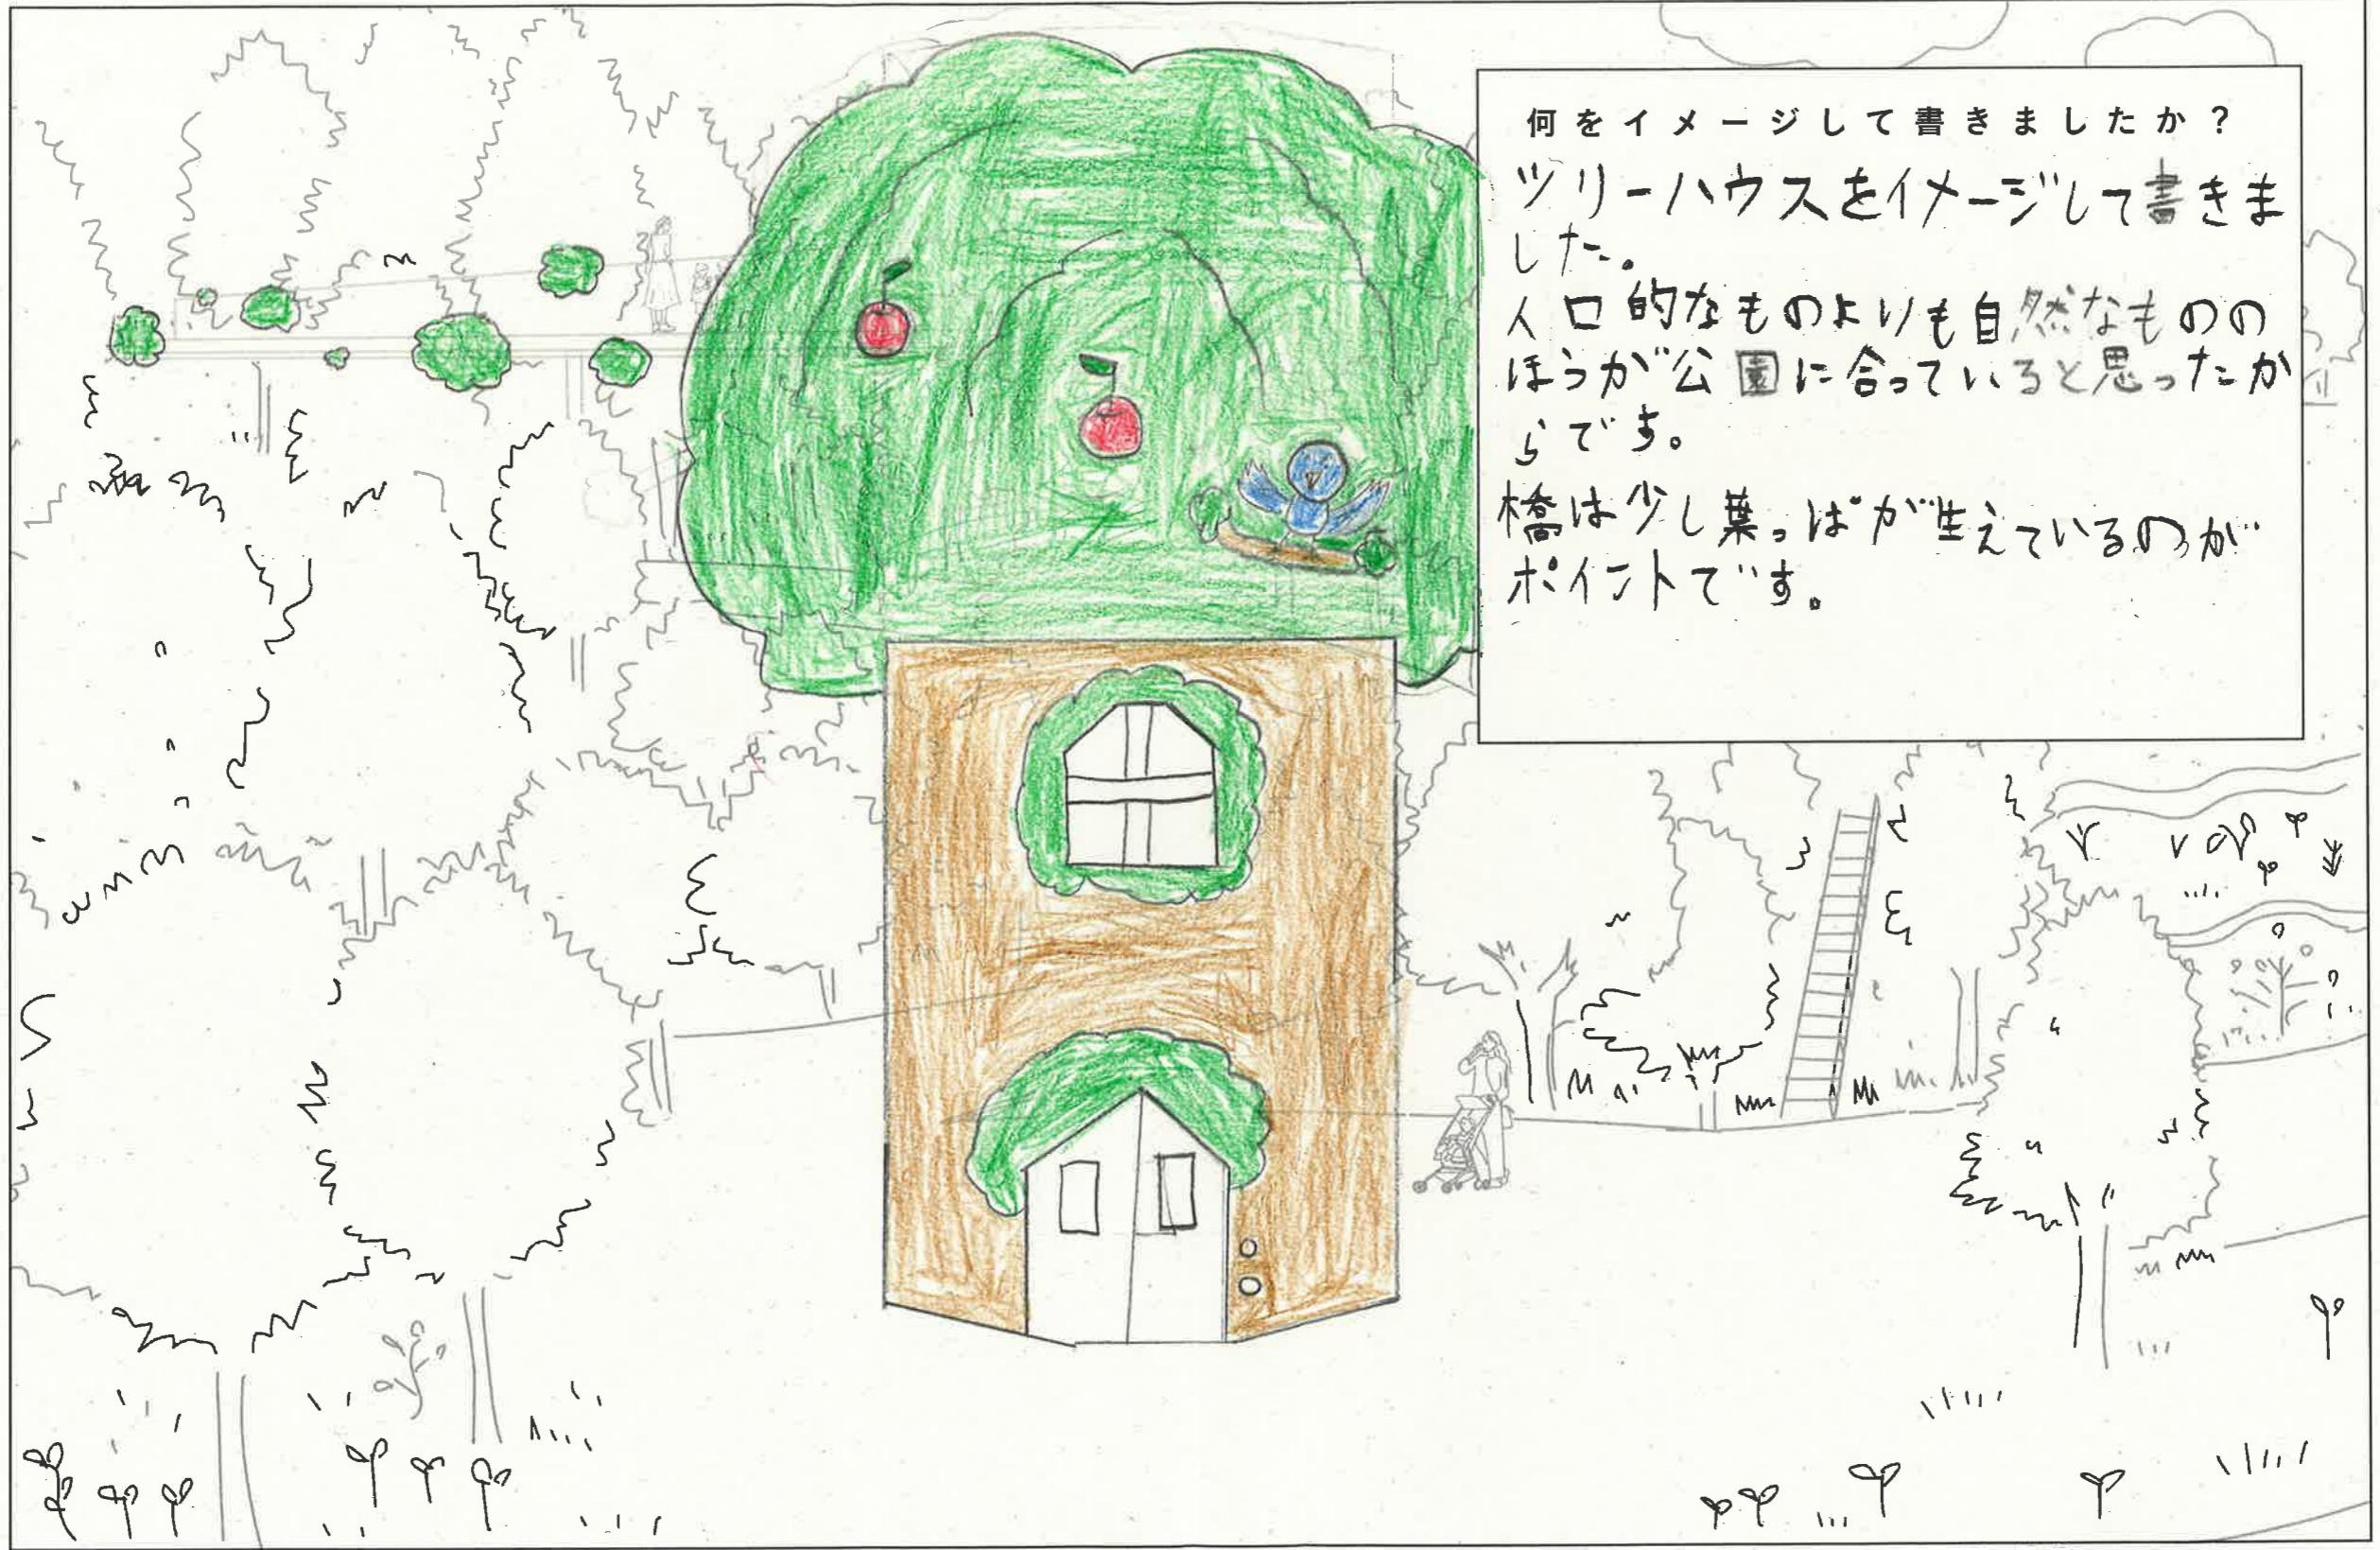 何をイメージして書きましたか？
ツリーハウスをイメージして書きま
した。
人口的なものよりも自然なものの
ほうが公園に合っていると思ったか
らです。
橋は少し葉っぱが生えているのが
ポイントです。